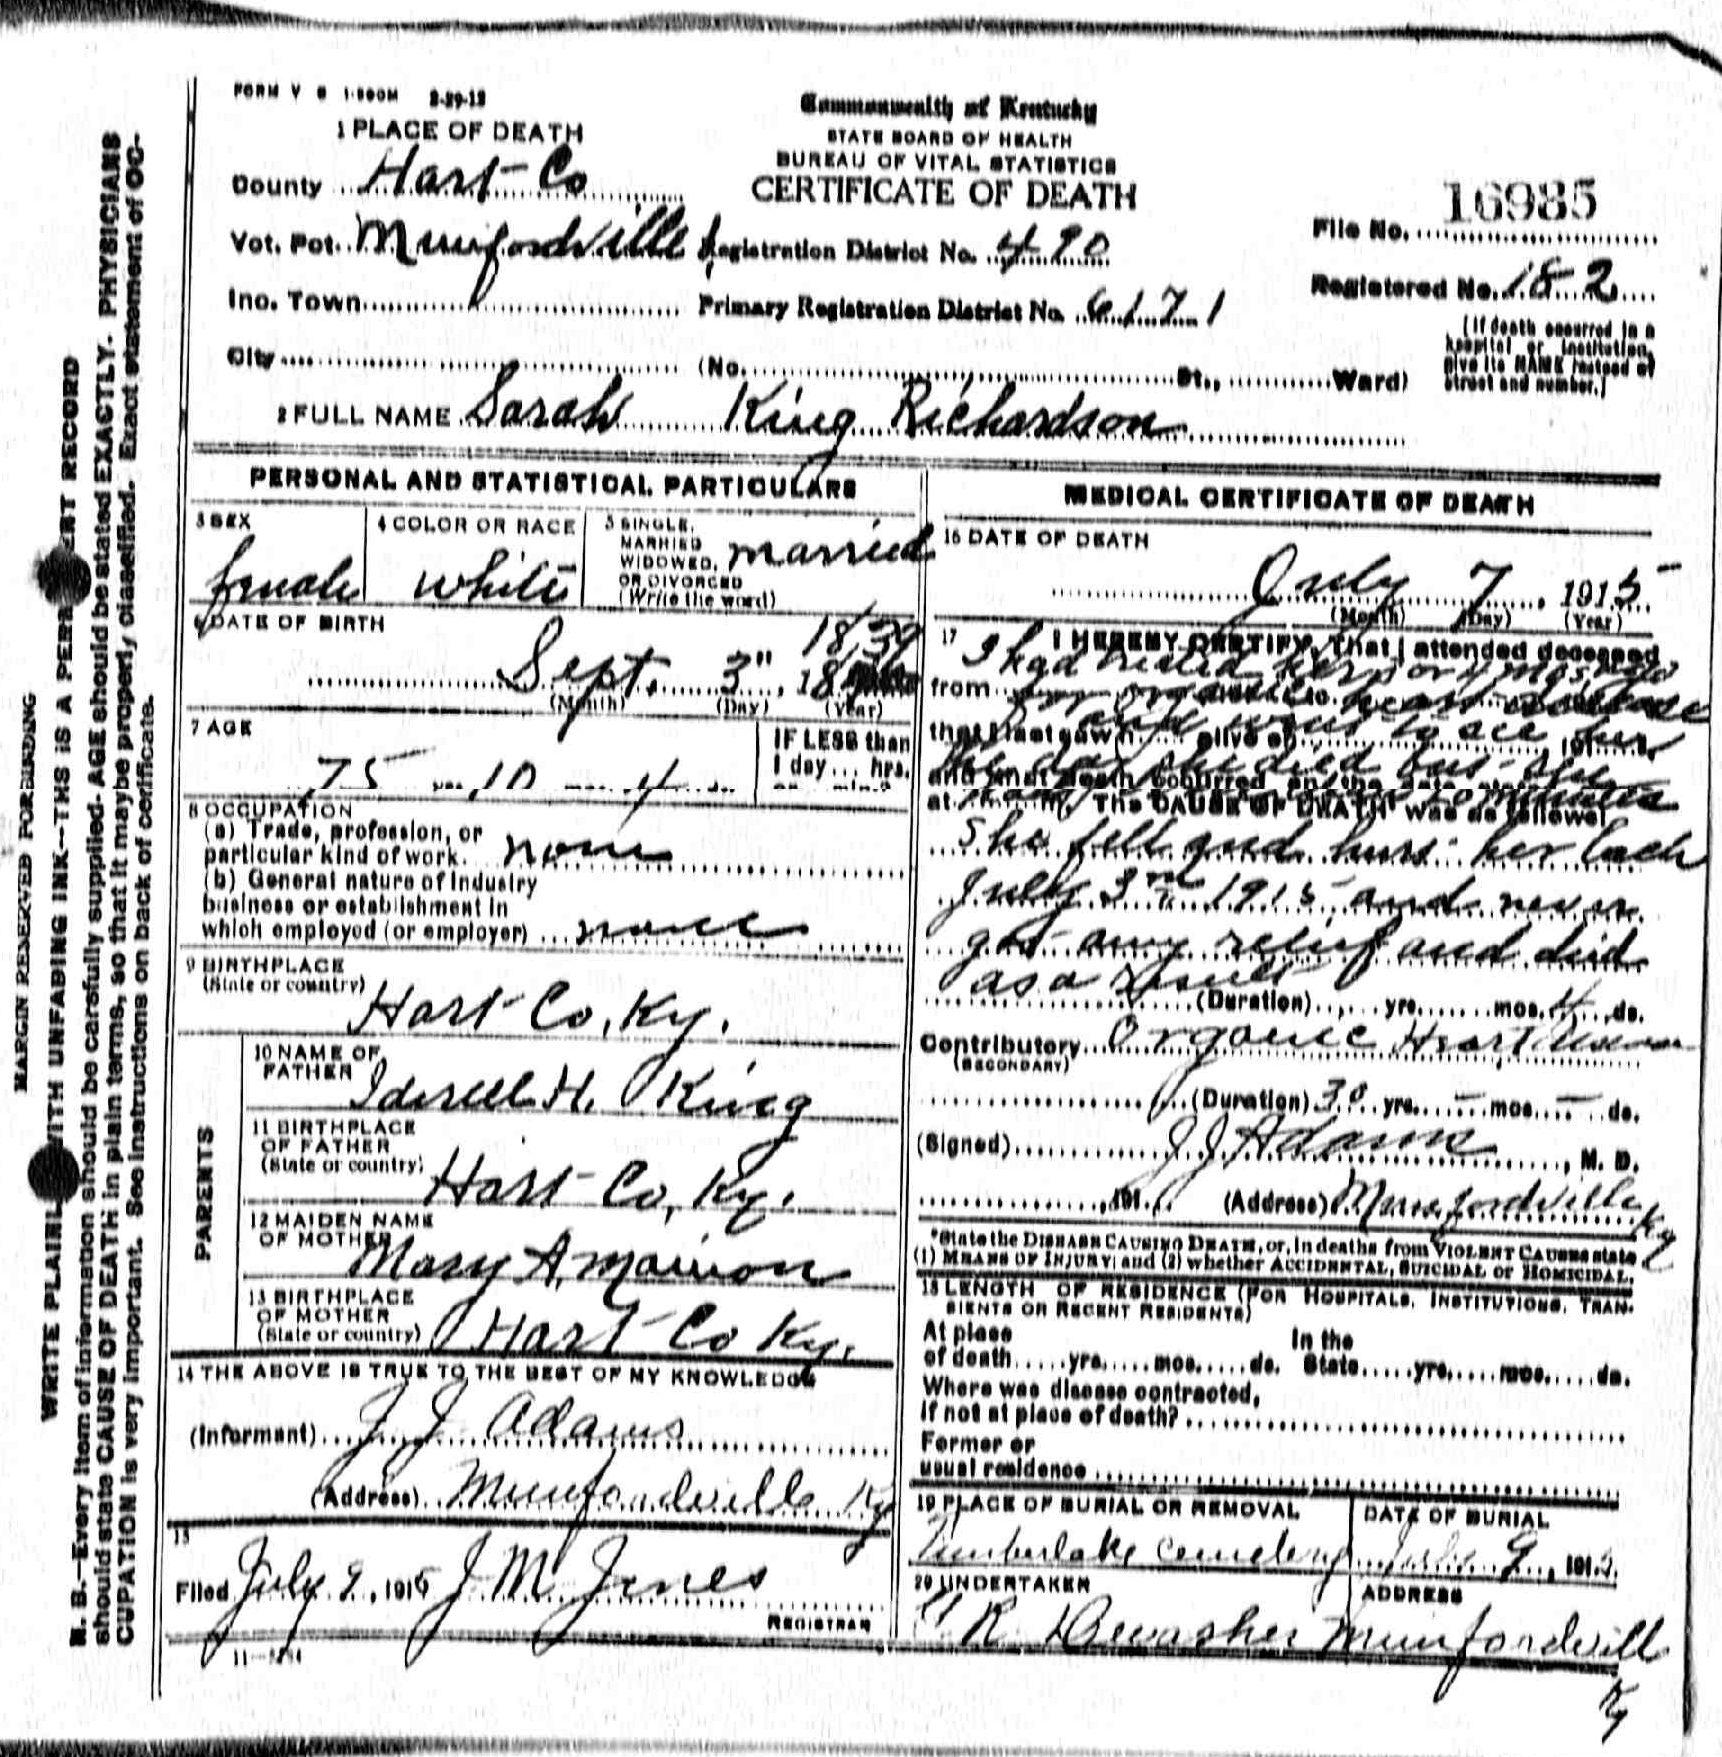 FORM V S 1-500M 2-29-12
1 PLACE OF DEATH
County Hart Co
Vot. Pct. Munfordville 1
Inc. Town
City (No. St., Ward)
Commonwealth of Kentucky
STATE BOARD OF HEALTH
BUREAU OF VITAL STATISTICS
CERTIFICATE OF DEATH
Registration District No. 490
Primary Registration District No. 6171
File No. 16985
Registered No. 182
(If death occurred in a
hospital or institution,
give its NAME instead of
street and number.)
2 FULL NAME Sarah King Richardson
PERSONAL AND STATISTICAL PARTICULARS
3 SEX
female
4 COLOR OR RACE
white
5 SINGLE,
MARRIED
WIDOWED,
OR DIVORCED
(Write the word)
married
6 DATE OF BIRTH
1839
Sept. 3", 18
(Month) (Day) (Year)
7 AGE
75 10 4
IF LESS than
1 day... hrs.
8 OCCUPATION
(a) Trade, profession, or
particular kind of work. none
(b) General nature of industry
business or establishment in
which employed (or employer) none
9 BIRTHPLACE
(State or country)
Hart Co, Ky.
PARENTS
10 NAME OF
FATHER
H. King
11 BIRTHPLACE
OF FATHER
(State or country)
Hart Co, Ky.
12 MAIDEN NAME
OF MOTHER
Mary A.
13 BIRTHPLACE
OF MOTHER
(State or country)
Hart Co Ky.
14 THE ABOVE IS TRUE TO THE BEST OF MY KNOWLEDGE
(Informant) J J Adams
(Address) Munfordville Ky
15
Filed July 9, 1915 J M Jones
REGISTRAR
MEDICAL CERTIFICATE OF DEATH
16 DATE OF DEATH
July 7, 1915
(Month) (Day) (Year)
17 I HEREBY CERTIFY, That I attended deceased
I had treated her 3 or 4 mos ago
from for organic heart disease
that I last saw h alive on , 191
and went to see her
the day she died but she
and that death occurred on the date
at m. The CAUSE OF DEATH was as follows:
She fell and hurt her back
July 3rd 1915 and never
got any relief and died
as a result
(Duration) yrs. mos. 4 ds.
Contributory Organic Heart
(SECONDARY)
(Duration) 30 yrs. - mos. - ds.
(Signed) J J Adams, M. D.
, 191 (Address) Munfordville Ky
*State the DISEASE CAUSING DEATH, or, in deaths from VIOLENT CAUSES state
(1) MEANS OF INJURY; and (2) whether ACCIDENTAL, SUICIDAL or HOMICIDAL.
18 LENGTH OF RESIDENCE (FOR HOSPITALS, INSTITUTIONS, TRAN-
SIENTS OR RECENT RESIDENTS)
At place In the
of death yrs. mos. ds. State yrs. mos. ds.
Where was disease contracted,
If not at place of death?
Former or
usual residence
19 PLACE OF BURIAL OR REMOVAL
cemetery
DATE OF BURIAL
July 9, 1915
20 UNDERTAKER
R Dewasher
ADDRESS
Munfordville
Ky
MARGIN RESERVED FOR BINDING
WRITE PLAINLY WITH UNFADING INK--THIS IS A PERMANENT RECORD
N. B.--Every item of information should be carefully supplied. AGE should be stated EXACTLY. PHYSICIANS
should state CAUSE OF DEATH in plain terms, so that it may be properly classified. Exact statement of OC-
CUPATION is very important. See instructions on back of certificate.